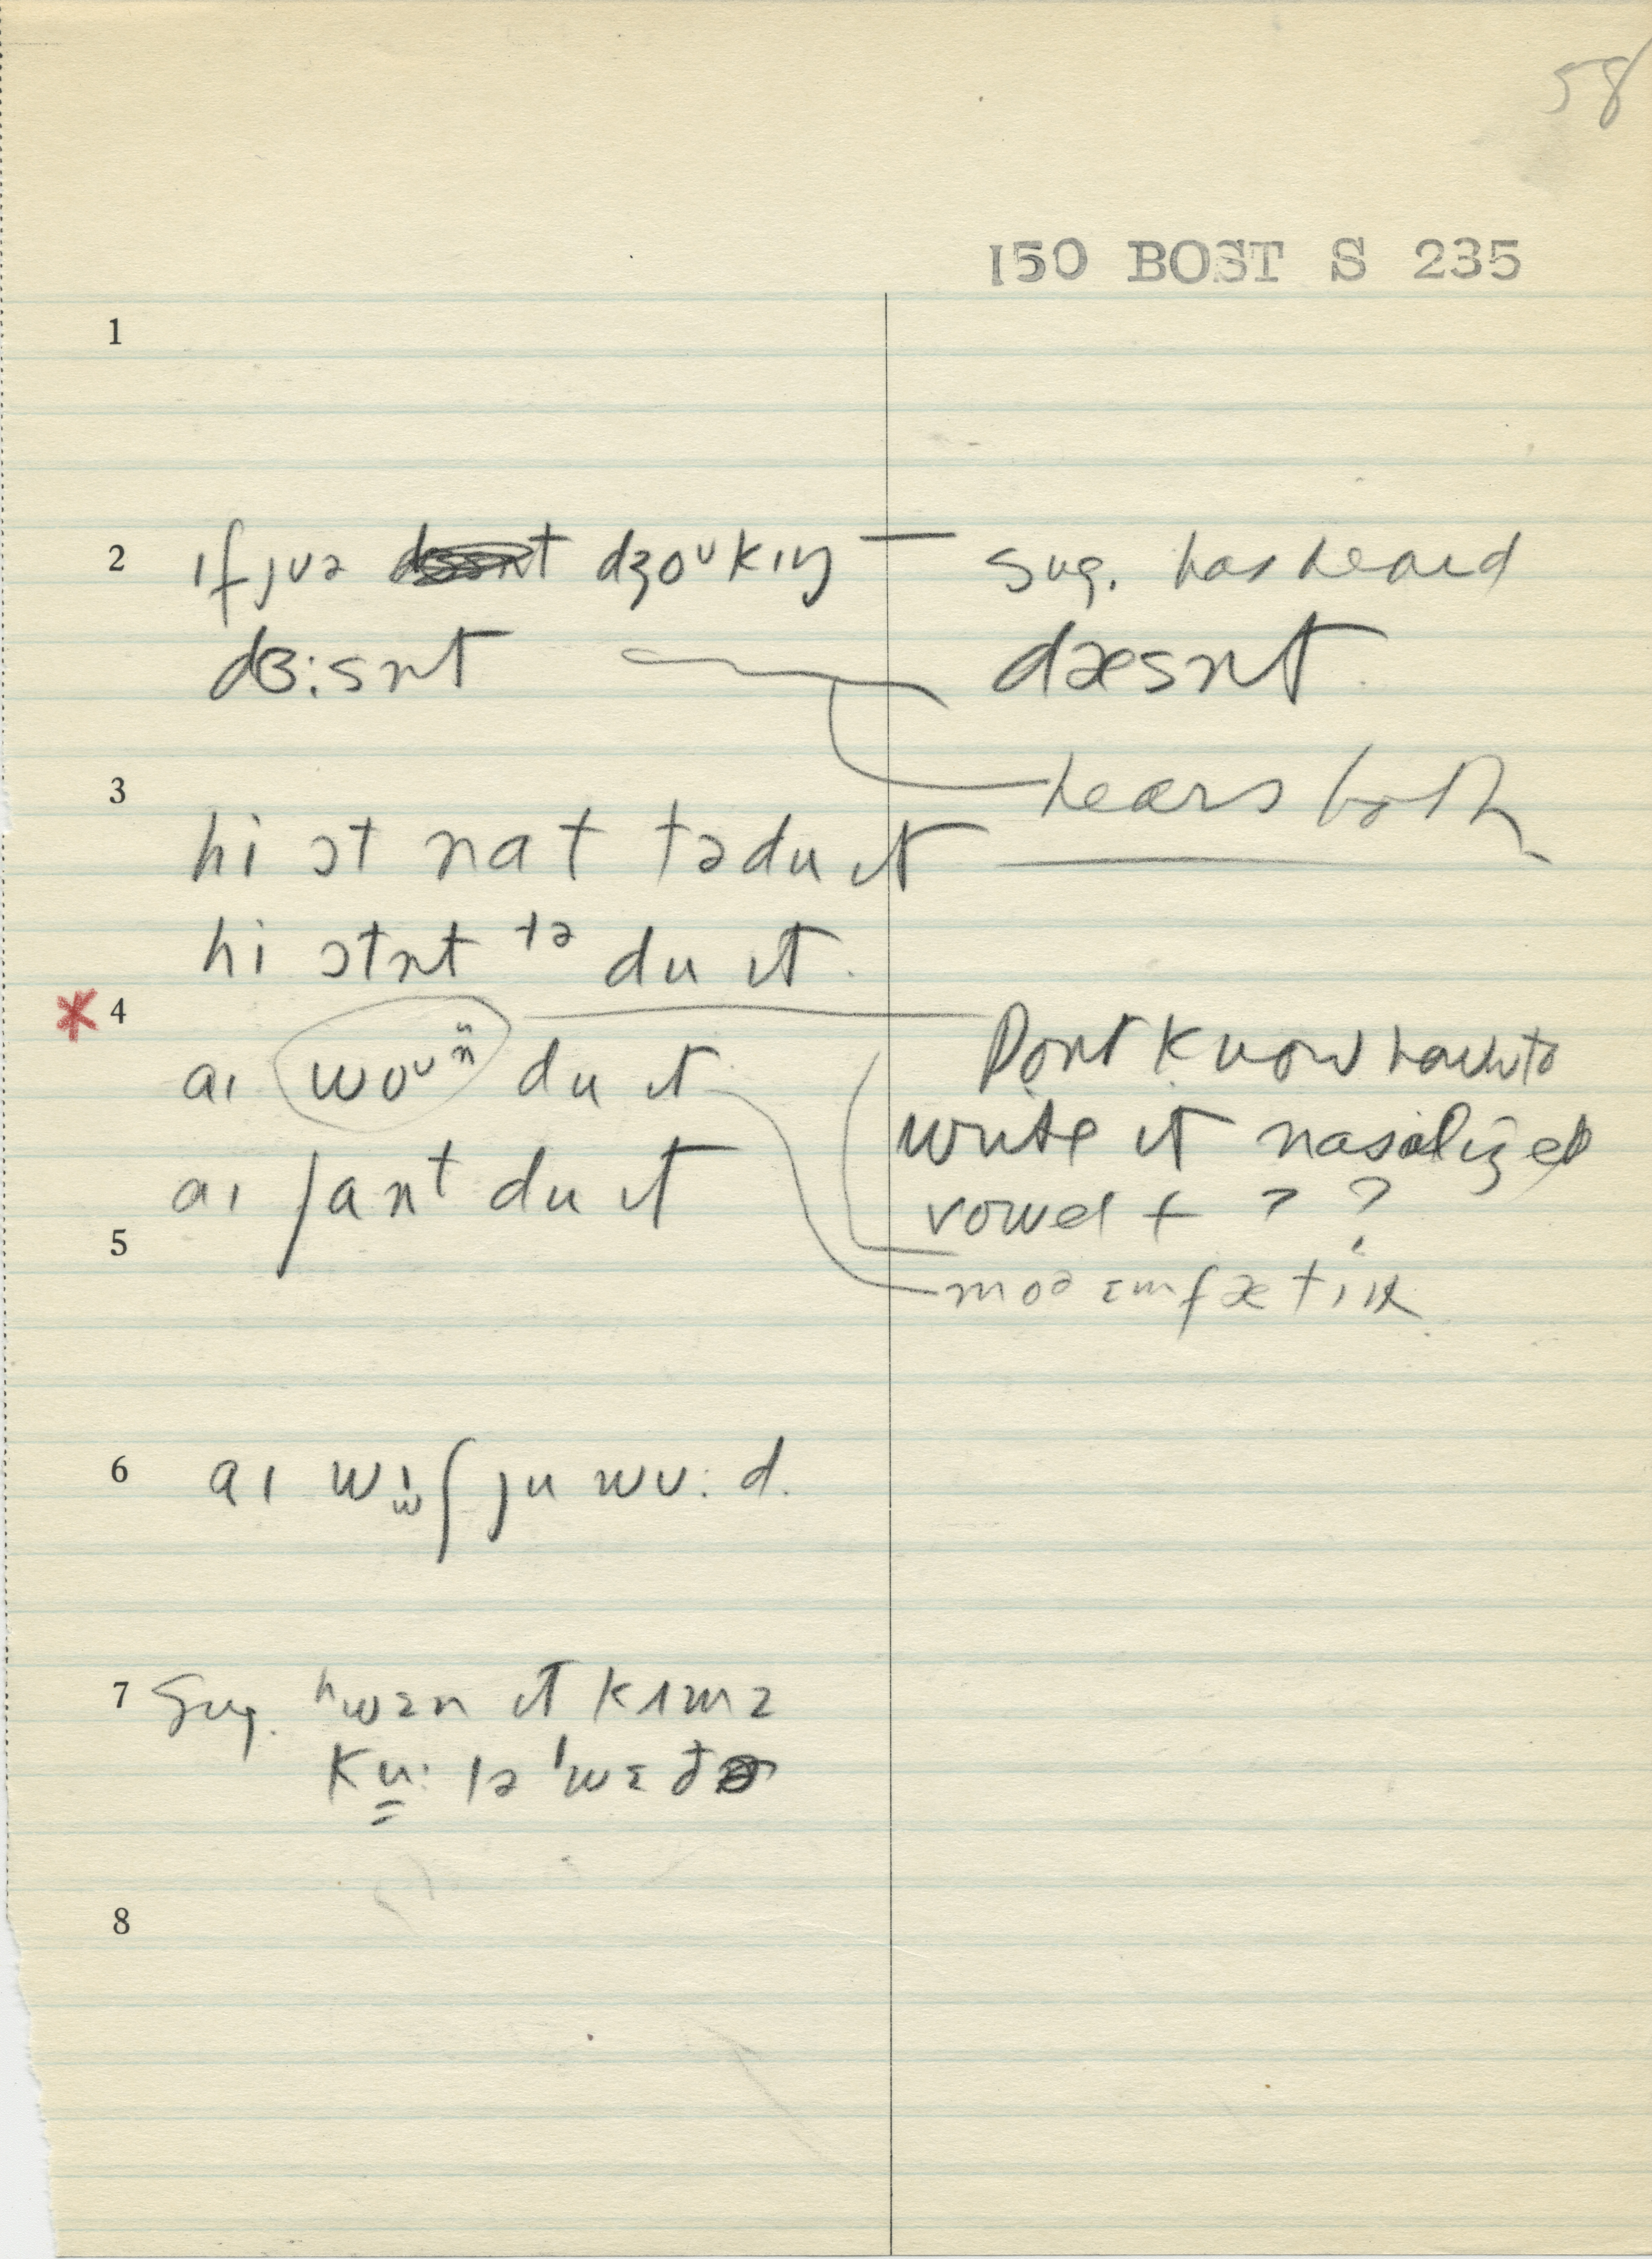 58
150 BOST S 235
1
2 ɪf jʊə dʒoᵘkɪŋ — sug. has heard
dɜ:snt dæsnt
3 hears both
hi ɔt nɑt tədu ɪt
hi ɔtnt tə du ɪt.
* 4
aɪ woᴜn̈ du ɪt Dont know how to
write it nasalized
aɪ ʃant du ɪt vowel + ? ?
5
moə ɛmfætɪk
6 aɪ wɪʃ ju wʊ:d.
7 Sug. ʰwɛn ɪt kʌmz
ku: lə 'wɛðə
8